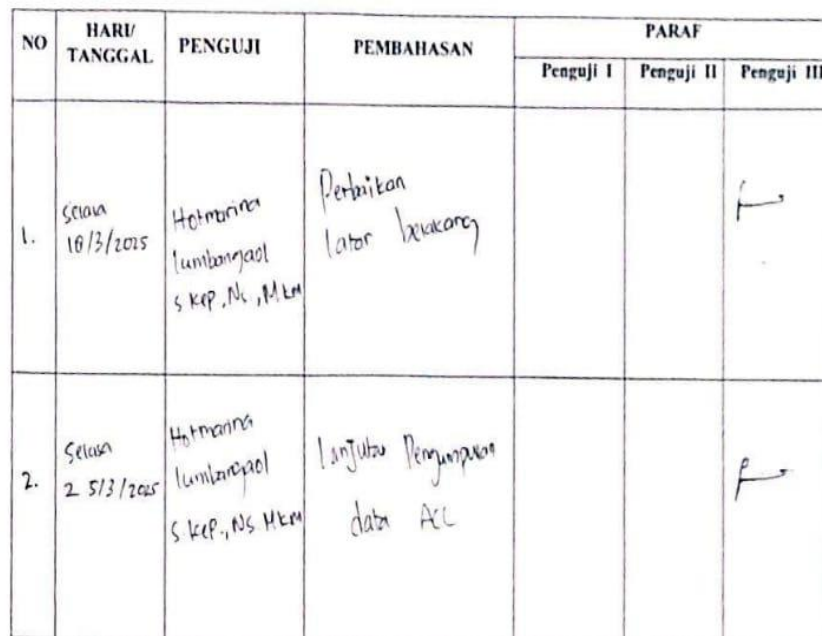 NO HARI/ TANGGAL PENGUJI PEMBAHASAN PARAF
Penguji I Penguji II Penguji III
1.
Selasa
18/3/2025
Hotmarina
lumbangaol
S.Kep, Ns, M.KM
Perbaikan
latar belakang
2.
Selasa
25/3/2025
Hotmarina
lumbangaol
S.Kep., NS. MKM
lanjutan Pengumpulan
data ACC